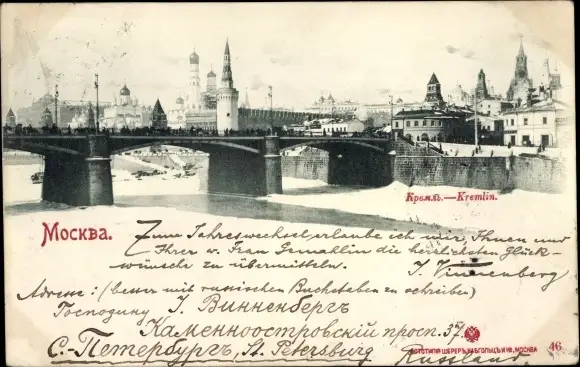 Кремль.—Kremlin.
Москва.
Zum Jahreswechsel erlaube ich mir, Ihnen und
Ihrer w. Frau Gemahlin die herzlichsten Glück-
wünsche zu übermitteln.
J. Vinnenberg
Adresse: (besser mit russischen Buchstaben zu schreiben)
Господину J. Винненбергъ
Каменноостровскій просп. 37.
С.-Петербургъ, St. Petersburg
Russland.
ФОТОТИПІЯ ШЕРЕРЪ, НАБГОЛЬЦЪ И К°, МОСКВА
46